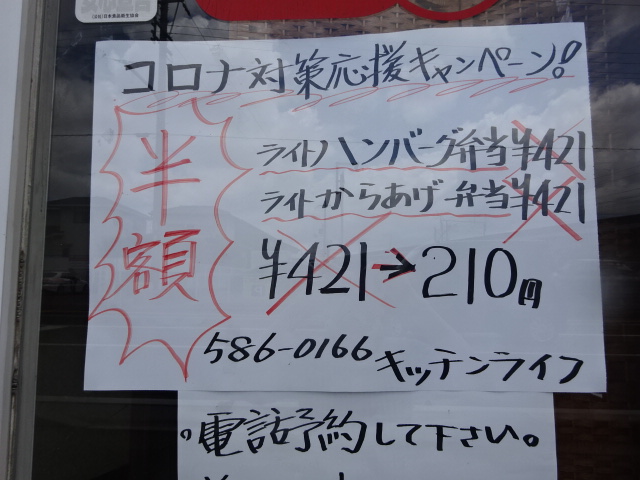 コロナ対策応援キャンペーン!!
半額
ライトハンバーグ弁当¥421
ライトからあげ弁当¥421
¥421→210円
586-0166 キッチンライフ
。電話予約して下さい。